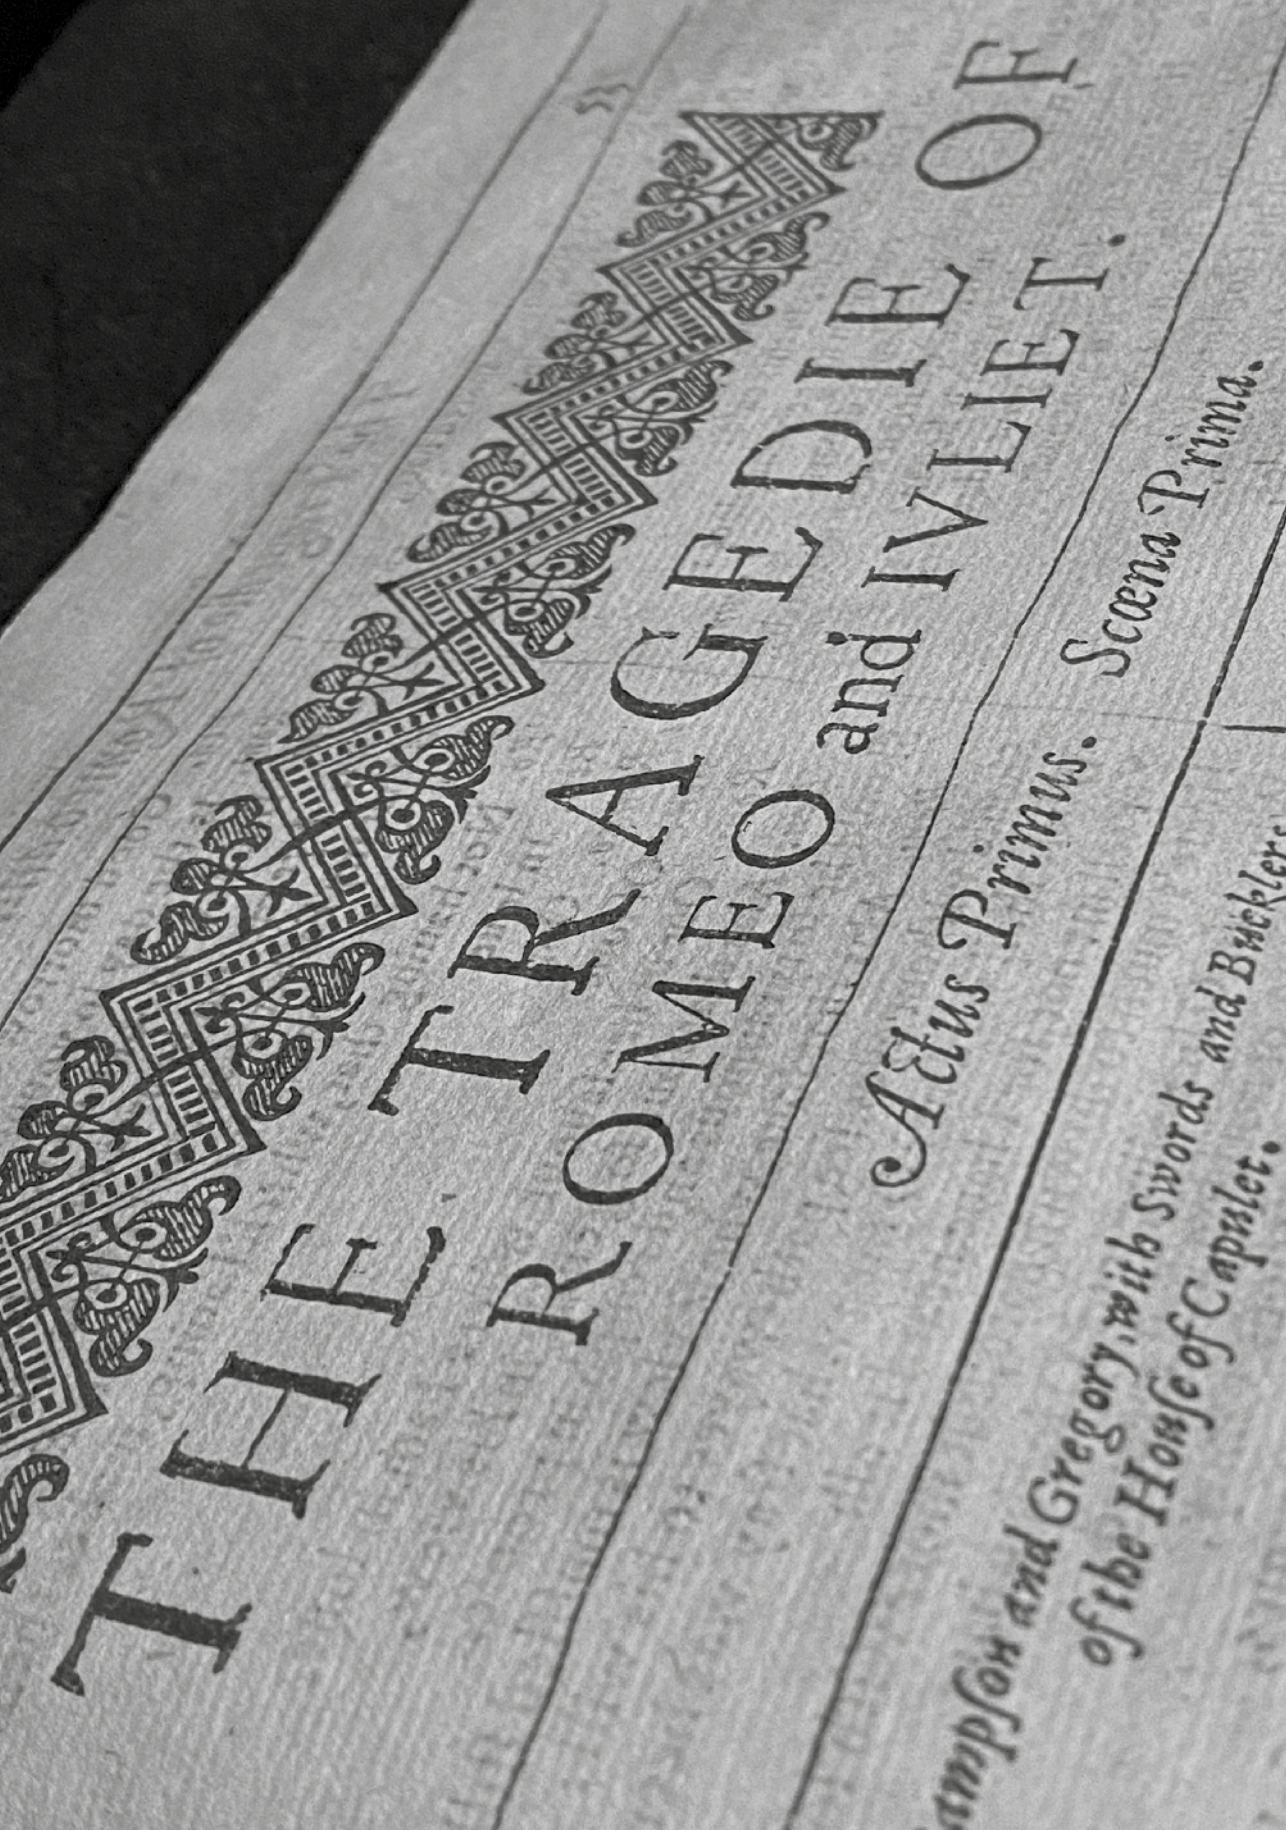 53
THE TRAGEDIE OF
ROMEO and IVLIET.
Actus Primus. Scœna Prima.
ampſon and Gregory, with Swords and Bucklers,
of the Houſe of Capulet.